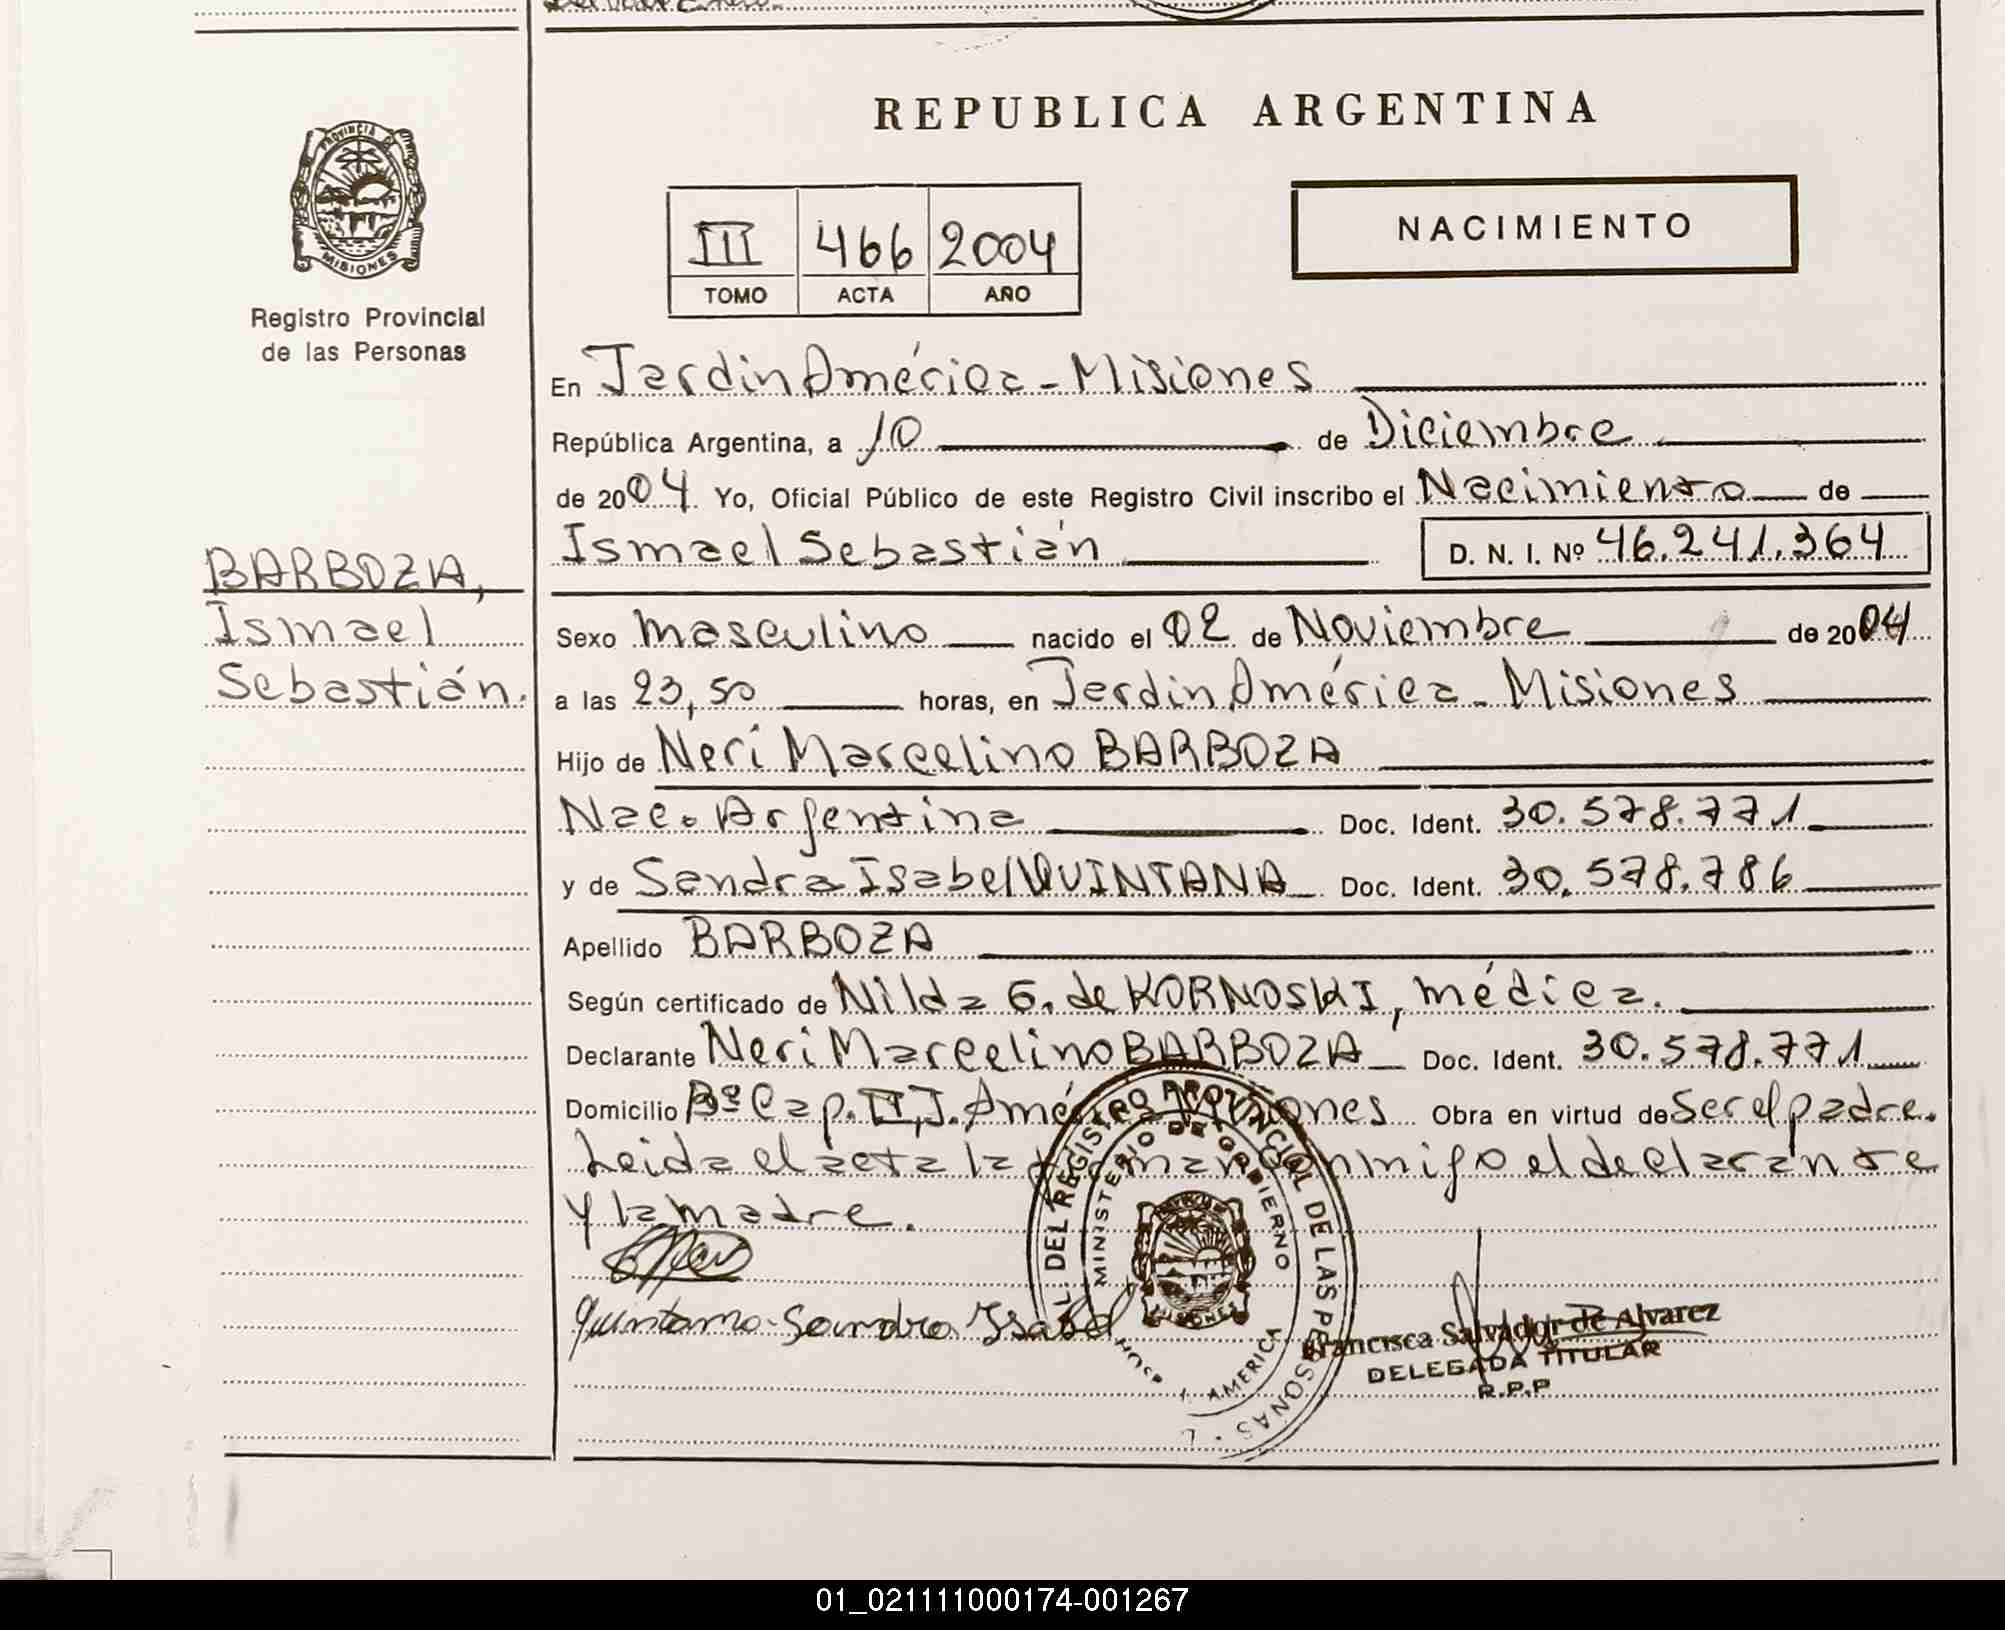 REPUBLICA ARGENTINA
PROVINCIA DE
MISIONES
Registro Provincial
de las Personas
III 466 2004
TOMO ACTA AÑO
NACIMIENTO
En Jardin América - Misiones
República Argentina, a 10 de Diciembre
de 2004. Yo, Oficial Público de este Registro Civil inscribo el Nacimiento de
Ismael Sebastián D. N. I. Nº 46.241.364
BARBOZA,
Ismael
Sebastián.
Sexo masculino nacido el 02 de Noviembre de 2004
a las 23,50 horas, en Jardin América - Misiones
Hijo de Neri Marcelino BARBOZA
Nac. Argentina Doc. Ident. 30.578.771
y de Sandra Isabel QUINTANA Doc. Ident. 30.578.786
Apellido BARBOZA
Según certificado de Nilda G. de KORNOSKI, médica.
Declarante Neri Marcelino BARBOZA Doc. Ident. 30.578.771
Domicilio Bº Cap. II, J. América Misiones Obra en virtud de Ser el padre.
Leida el acta la firman conmigo el declarante
y la madre.
Quintana Sandra Isabel
DEL REGISTRO PROVINCIAL DE LAS PERSONAS
MINISTERIO DE GOBIERNO
AMERICA
MISIONES
Francisca Salvador de Alvarez
DELEGADA TITULAR
R.P.P
01_021111000174-001267